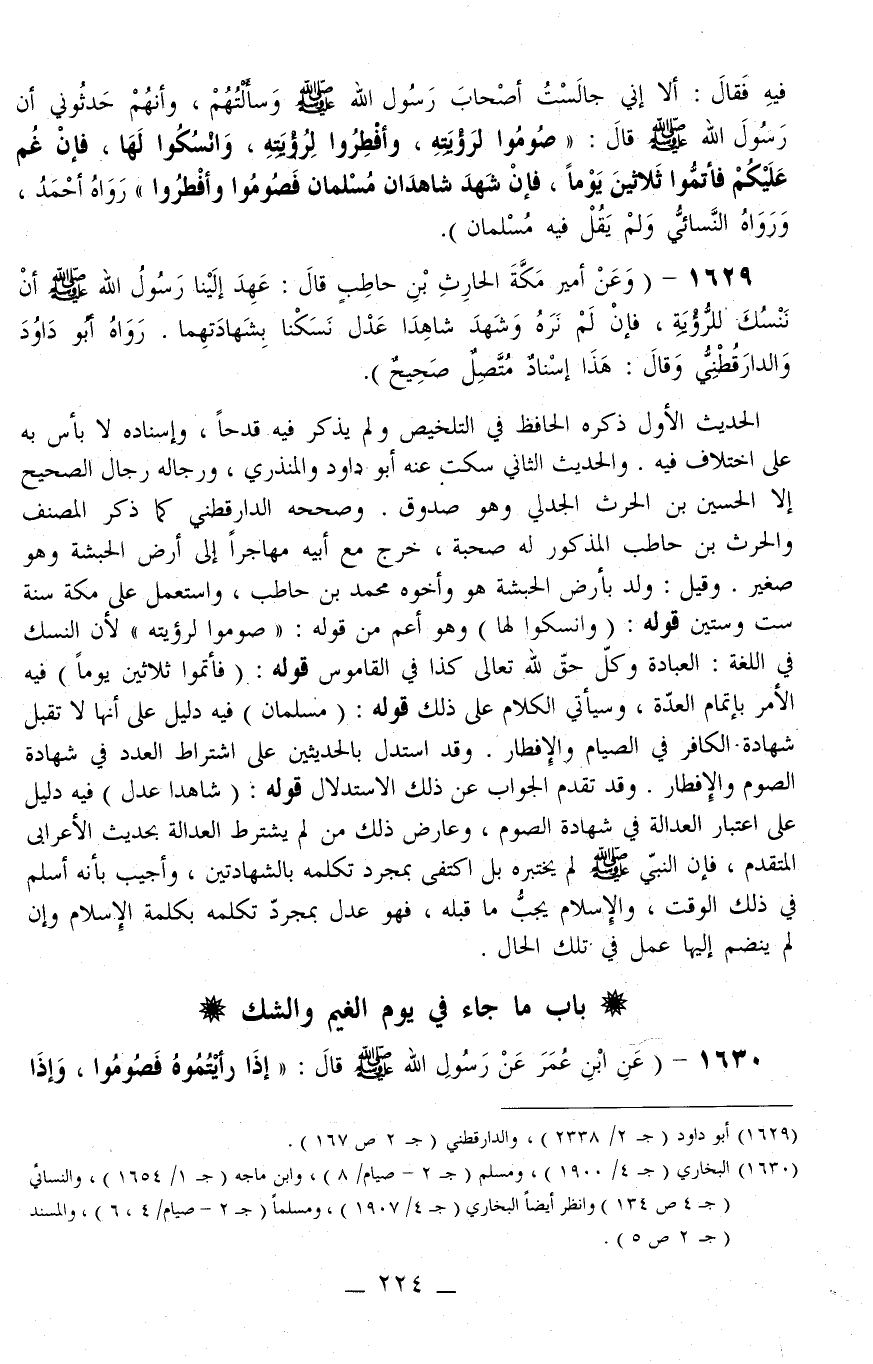 فيهِ فَقالَ : ألا إني جالَسْتُ أصْحابَ رَسُول الله ﷺ وَسأَلْتُهُمْ ، وأنهُمْ حَدثُوني أن
رَسُولَ الله ﷺ قالَ : « صُومُوا لرَؤْيَتِهِ ، وأفْطِرُوا لِرُؤيَتِهِ ، وَانْسُكُوا لَهَا ، فإنْ غُم
عَلَيْكُمْ فأتمُّوا ثَلاثينَ يَوْماً ، فإنْ شَهدَ شاهدَان مُسْلمان فَصُومُوا وأفْطرُوا » رَوَاهُ أحْمَدُ ،
وَرَوَاهُ النَّسائيُّ وَلمْ يَقُلْ فيه مُسْلمان ) .
١٦٢٩ – ( وَعَنْ أمير مَكَّةَ الحارِثِ بْنِ حاطِبٍ قالَ : عَهِدَ إلَيْنا رَسُولُ الله ﷺ أنْ
نَنْسُكَ للرُّؤْيَةِ ، فإنْ لَمْ نَرَهُ وَشَهدَ شاهِدَا عَدْل نَسَكْنا بِشَهادَتهِما . رَوَاهُ أبُو دَاوُدَ
وَالدارَقُطْنِيُّ وَقالَ : هَذَا إسْنادٌ مُتَّصِلٌ صَحِيحٌ ) .
الحديث الأول ذكره الحافظ في التلخيص ولم يذكر فيه قدحاً ، وإسناده لا بأس به
على اختلاف فيه . والحديث الثاني سكت عنه أبو داود والمنذري ، ورجاله رجال الصحيح
إلا الحسين بن الحرث الجدلي وهو صدوق . وصححه الدارقطني كما ذكر المصنف
والحرث بن حاطب المذكور له صحبة ، خرج مع أبيه مهاجراً إلى أرض الحبشة وهو
صغير . وقيل : ولد بأرض الحبشة هو وأخوه محمد بن حاطب ، واستعمل على مكة سنة
ست وستين قوله : ( وانسكوا لها ) وهو أعم من قوله : « صوموا لرؤيته » لأن النسك
في اللغة : العبادة وكلّ حقّ لله تعالى كذا في القاموس قوله : ( فأتموا ثلاثين يوماً ) فيه
الأمر بإتمام العدّة ، وسيأتي الكلام على ذلك قوله : ( مسلمان ) فيه دليل على أنها لا تقبل
شهادة الكافر في الصيام والإفطار . وقد استدل بالحديثين على اشتراط العدد في شهادة
الصوم والإفطار . وقد تقدم الجواب عن ذلك الاستدلال قوله : ( شاهدا عدل ) فيه دليل
على اعتبار العدالة في شهادة الصوم ، وعارض ذلك من لم يشترط العدالة بحديث الأعرابى
المتقدم ، فإن النبيّ ﷺ لم يختبره بل اكتفى بمجرد تكلمه بالشهادتين ، وأجيب بأنه أسلم
في ذلك الوقت ، والإسلام يجبُّ ما قبله ، فهو عدل بمجردّ تكلمه بكلمة الإسلام وإن
لم ينضم إليها عمل في تلك الحال .
✸ باب ما جاء في يوم الغيم والشك ✸
١٦٣٠ – ( عَنِ ابْنِ عُمَرَ عَنْ رَسُولِ الله ﷺ قالَ : « إذَا رأيْتُمُوهُ فَصُومُوا ، وَإذَا
(١٦٢٩) أبو داود ( جـ ٢/ ٢٣٣٨ ) ، والدارقطني ( جـ ٢ ص ١٦٧ ) .
(١٦٣٠) البخاري ( جـ ٤/ ١٩٠٠ ) ، ومسلم ( جـ ٢ – صيام/ ٨ ) ، وابن ماجه ( جـ ١/ ١٦٥٤ ) ، والنسائي
( جـ ٤ ص ١٣٤ ) وانظر أيضاً البخاري ( جـ ٤/ ١٩٠٧ ) ، ومسلماً ( جـ ٢ – صيام/ ٤ ، ٦ ) ، والمسند
( جـ ٢ ص ٥ ) .
— ٢٢٤ —